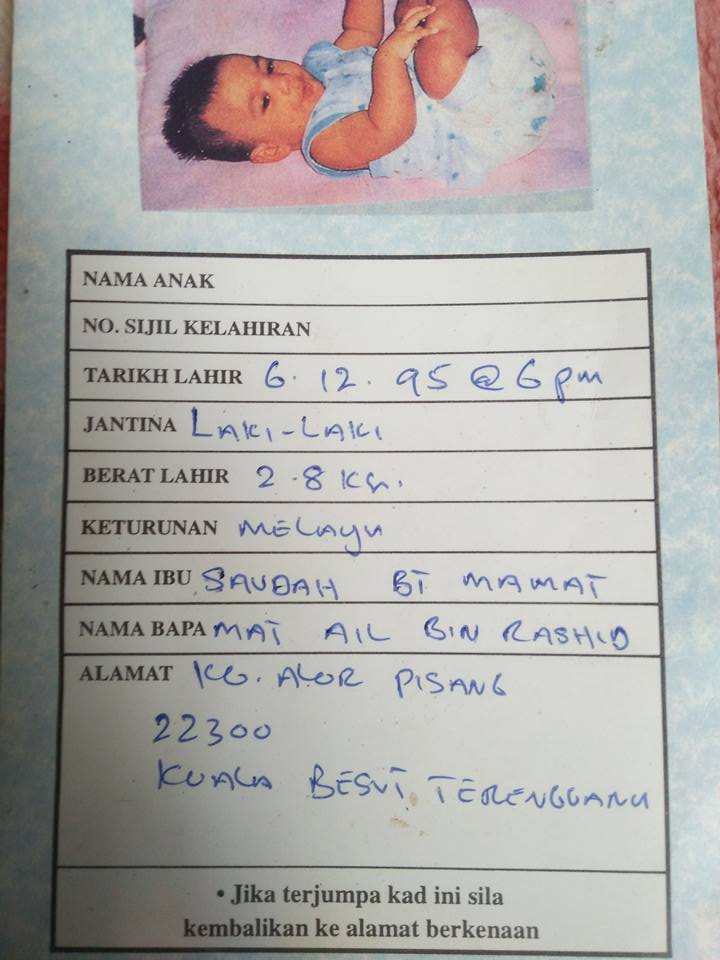 NAMA ANAK
NO. SIJIL KELAHIRAN
TARIKH LAHIR 6.12.95 @ 6pm
JANTINA LAKI-LAKI
BERAT LAHIR 2.8 KG.
KETURUNAN MELAYU
NAMA IBU SAUDAH BT MAMAT
NAMA BAPA MAT AIL BIN RASHID
ALAMAT KG. ALOR PISANG
22300
KUALA BESUT, TERENGGANU
• Jika terjumpa kad ini sila
kembalikan ke alamat berkenaan